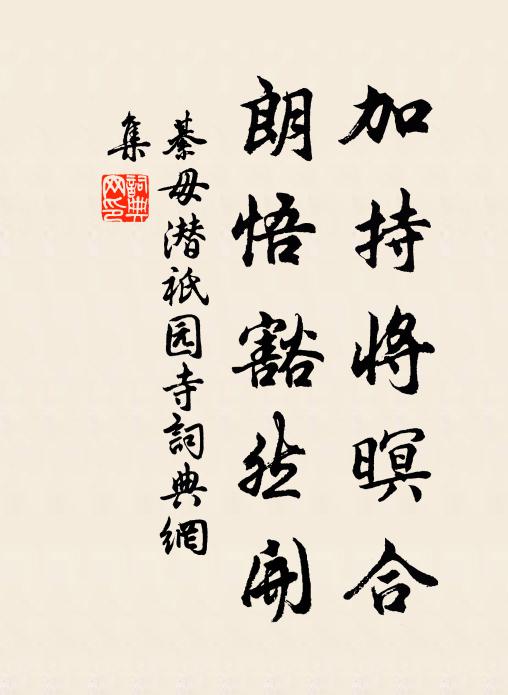 加持将暝合
朗悟豁然開
綦毋潜祇园寺詞典網
集
詞典網印